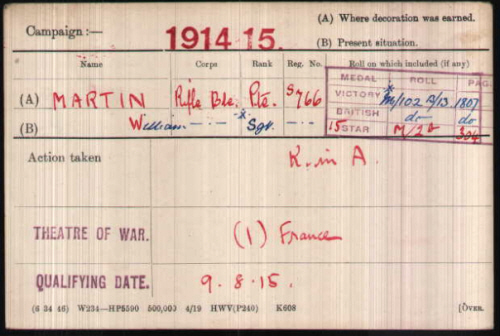 Campaign :— 1914 15. (A) Where decoration was earned.
(B) Present situation.
Name Corps Rank Reg. No. Roll on which included (if any)
MEDAL ROLL PAGE
(A) MARTIN Rifle Bde. Pte. S/766 VICTORY * M/102 B/13. 1807
(B) William — — * Sgt. — " — BRITISH do do
15 STAR M/2A 304
Action taken K. in A.
THEATRE OF WAR. (1) France
QUALIFYING DATE. 9.8.15.
(6 34 46) W234—HP5590 500,000 4/19 HWV(P240) K608 [OVER.